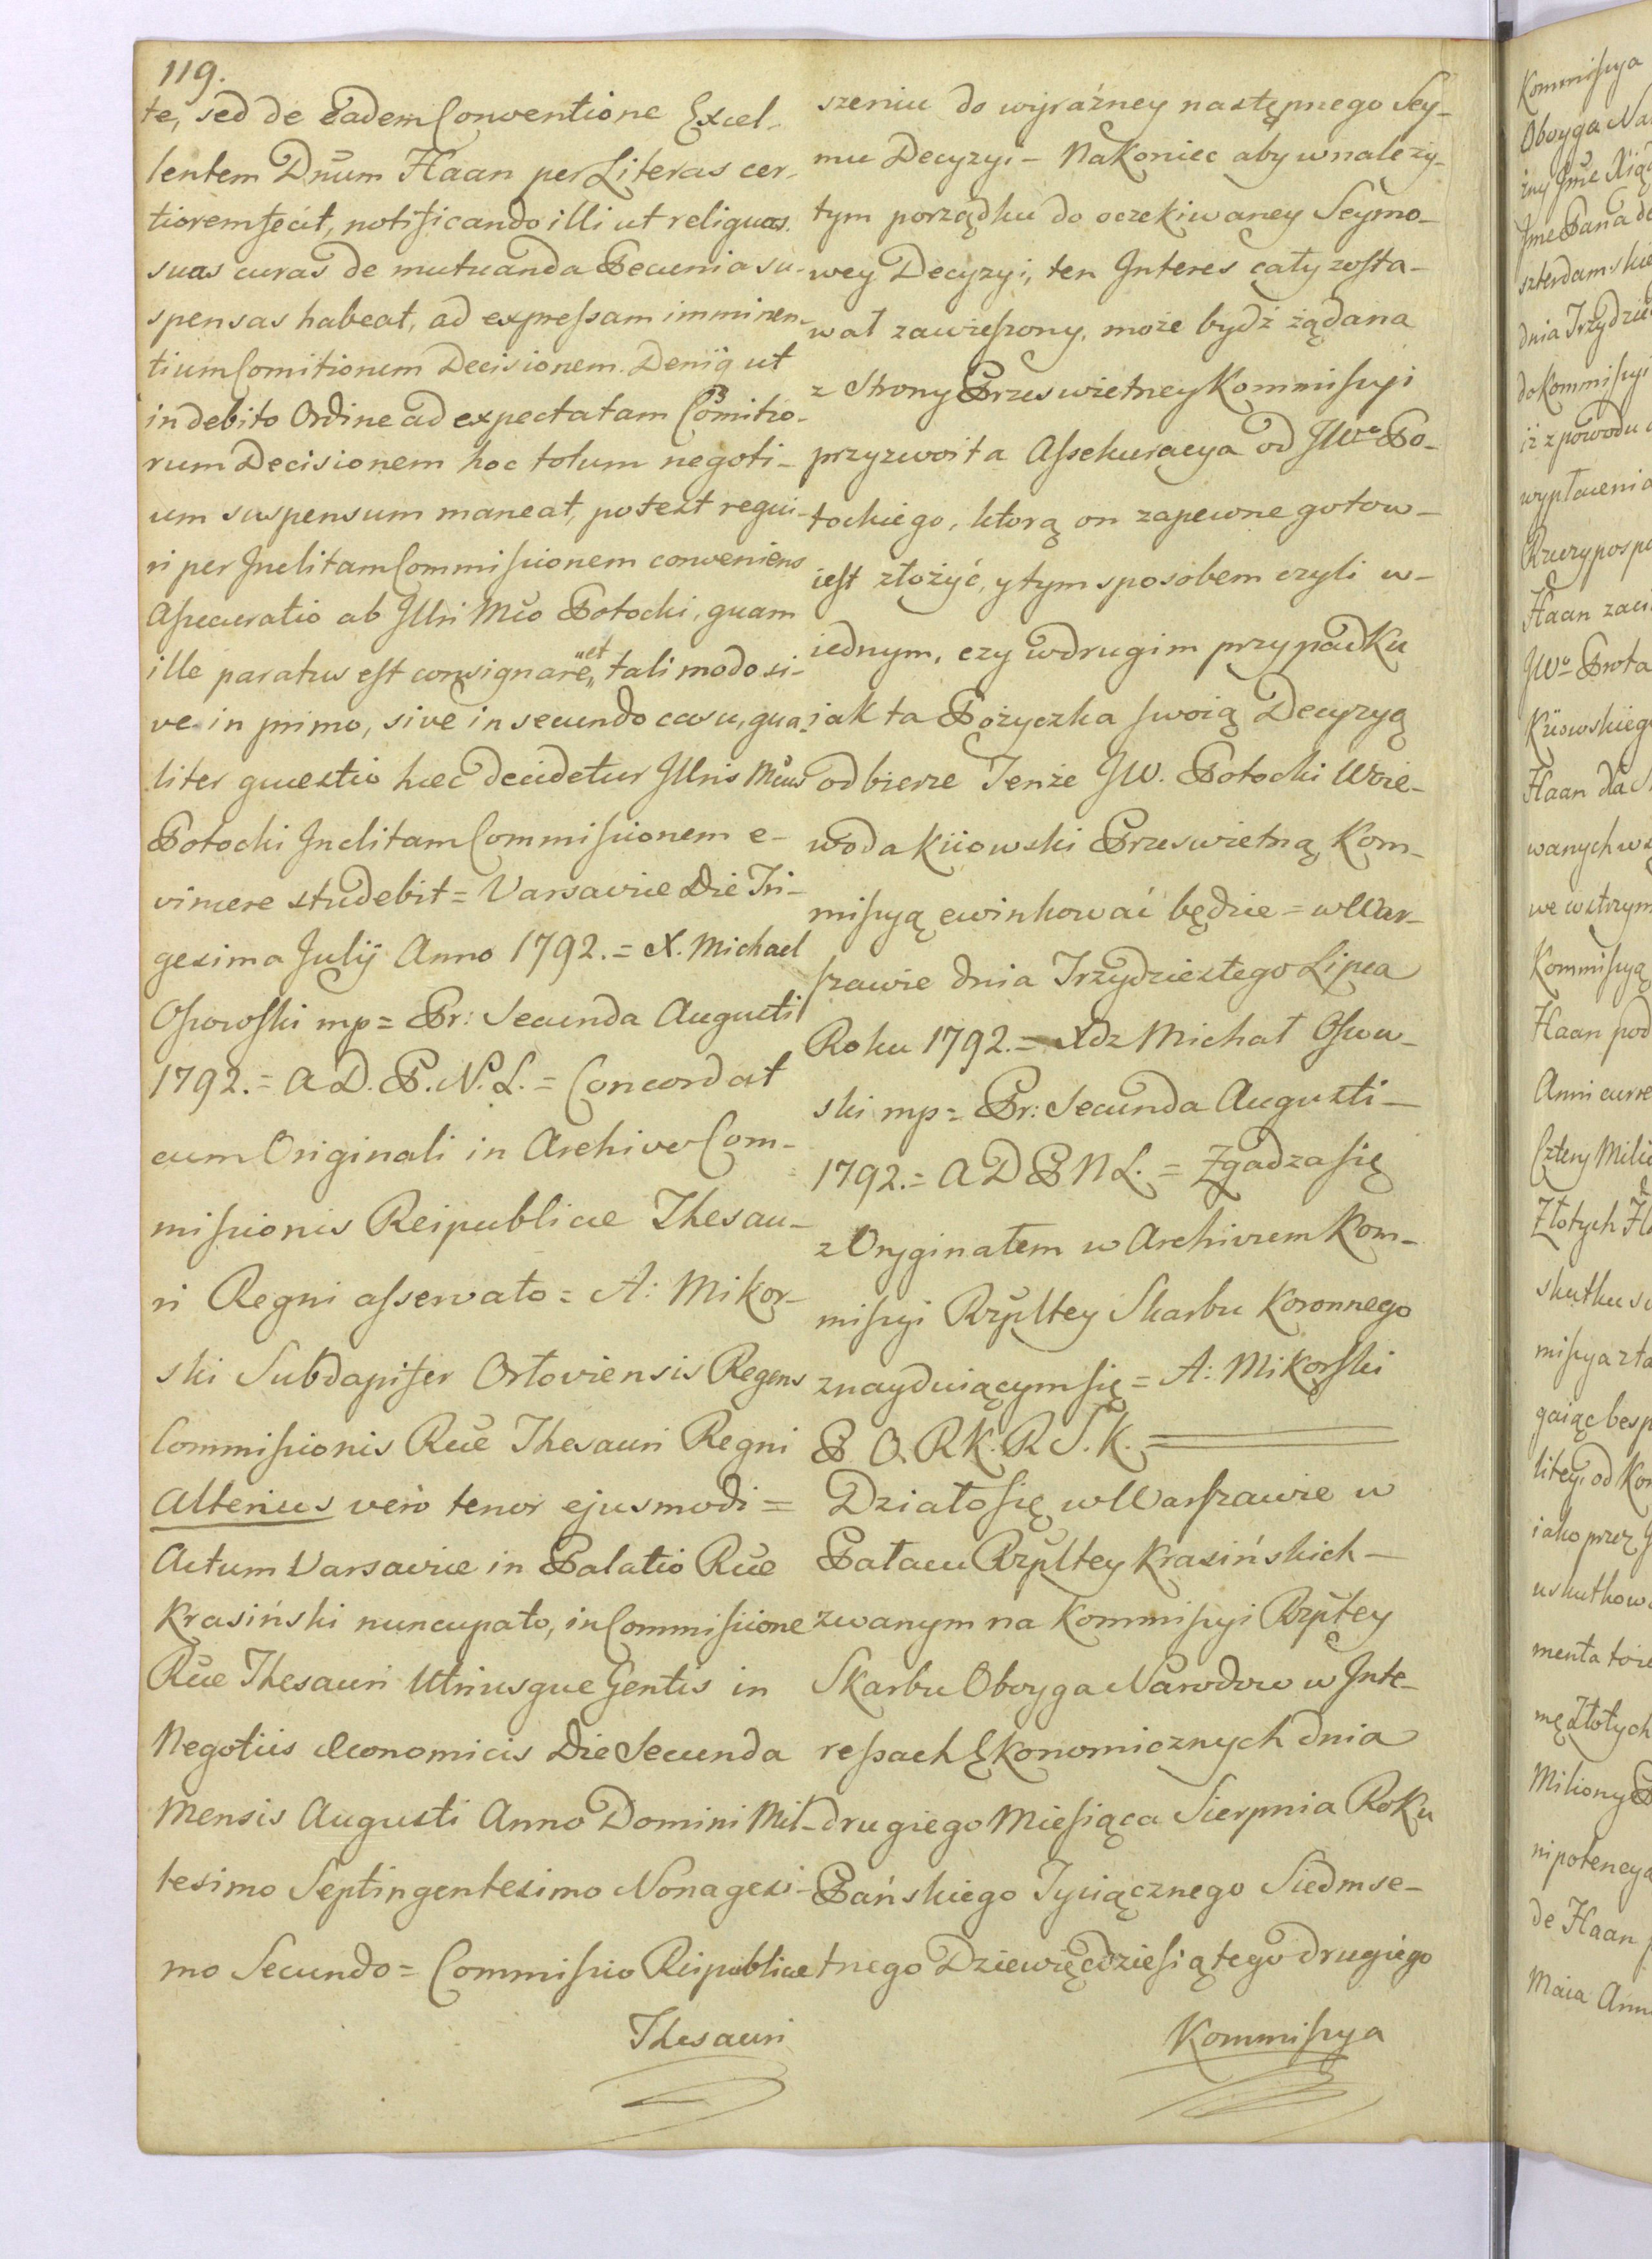 119.
te, sed de eadem Conventione Excel-
lentem Dnum Haan per Literas cer-
tiorem fecit, notificando illi ut reliquas
suas curas de mutuanda Pecunia su-
spensas habeat, ad expressam imminen-
tium Comitionum Decisionem. Deniq ut
in debito Ordine ad expectatam Comitio-
rum Decisionem hoc totum negoti-
um suspensum maneat, potest requi-
ri per Inclitam Commissionem conveniens
Assecuratio ab Illri Mco Potocki, quam
ille paratus est consignare, et tali modo si-
ve in primo, sive in secundo casu, qua-
liter quæstio hæc decidetur Illris Mcus
Potocki Inclitam Commissionem e-
vincere studebit = Varsaviæ Die Tri-
gesima Julij Anno 1792. = X. Michael
Ossowski mp = Pr: Secunda Augusti
1792. = A D. P. N. L. = Concordat
cum Originali in Archivo Com-
missionis Reipublicæ Thesau-
ri Regni asservato = A: Mikor-
ski Subdapifer Orloviensis Regens
Commissionis Rcæ Thesauri Regni
Alterius vero tenor ejusmodi =
Actum Varsaviæ in Palatio Rcæ
Krasiński nuncupato, in Commissione
Rcæ Thesauri Utriusque Gentis in
Negotiis Œconomicis Die Secunda
Mensis Augusti Anno Domini Mil-
lesimo Septingentesimo Nonagesi-
mo Secundo = Commissio Reipublicæ
Thesauri
szeniu do wyraźney następnego Sey-
mu Decyzyi – Nakoniec aby w należy-
tym porządku do oczekiwaney Seymo-
wey Decyzyi, ten Interes cały zosta-
wał zawieszony, może bydź żądana
z Strony Prześwietney Kommissyi
przyzwoita Assekuracya od JWo Po-
tockiego, ktorą on zapewne gotow-
iest złożyć, y tym sposobem czyli w-
iednym, czy w drugim przypadku
jak ta Pożyczka swoią Decyzyą
odbierze Tenże JW. Potocki Woie-
woda Kiiowski Prześwietną Kom-
missyą ewinkować będzie = w War-
szawie dnia Trzydziestego Lipca
Roku 1792. = Xdz Michał Ossow-
ski mp = Pr: Secunda Augusti –
1792. = A D P N L. = Zgadza się
z Oryginałem w Archiwum Kom-
missyi Rzpltey Skarbu Koronnego
znayduiącym się = A: Mikorski
P O. R K. R S. K. =
Działo się w Warszawie w
Pałacu Rzpltey Krasińskich –
zwanym na Kommissyi Rzpltey
Skarbu Oboyga Narodow w Inte-
ressach Ekonomicznych dnia
drugiego Miesiąca Sierpnia Roku
Pańskiego Tysiącznego Siedmse-
tnego Dziewięćdziesiątego drugiego
Kommissya
Kommissya
Oboyga Na
Jme Pana de
szterdamskie
dnia Trzydzie
do Kommissyi
iż z powodu
wypłacenia
Rzeczypospo
Haan
JWo Prota
Kiiowskiego
Haan dla
wanych w
we wstrzym
Kommissyą
Haan pod
Anni curre
Cztery Milio
Złotych
skutku
missya
gaiąc besp
litey, od Kom
iako przez
uskutkowa
menta
mę Złotych
Miliony
nipotencya
de Haan
Maia Anni